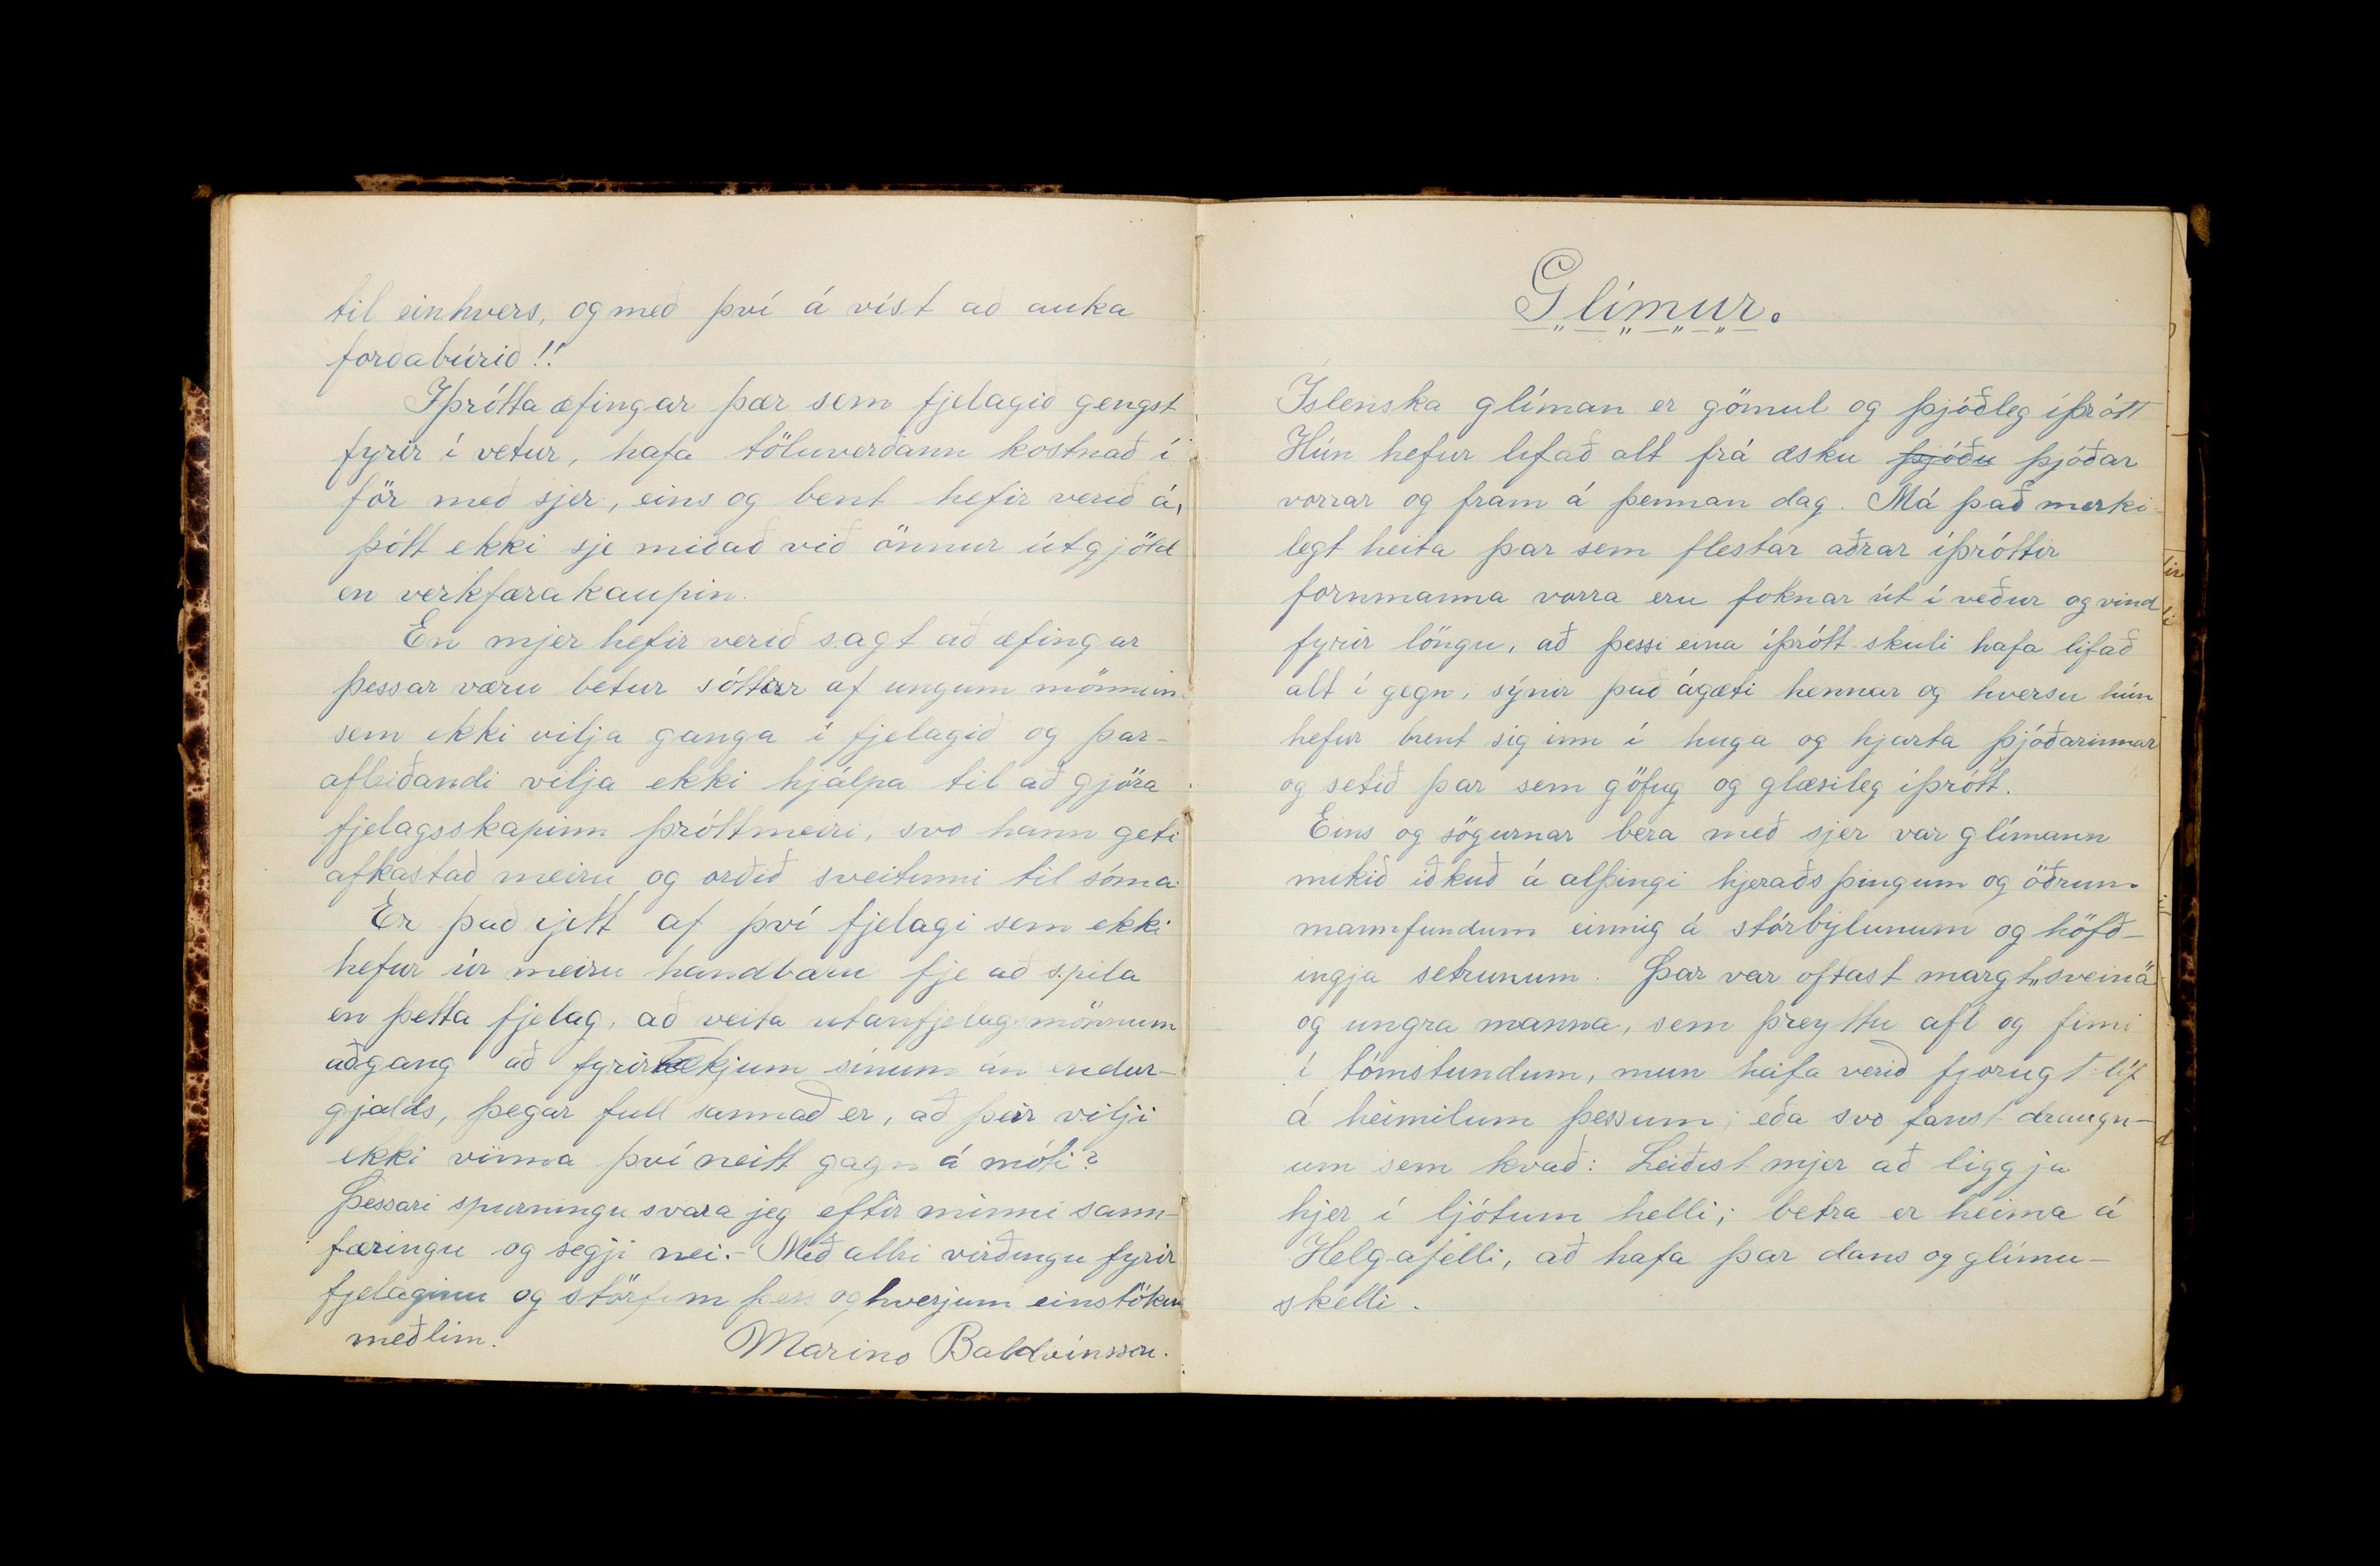 til einhvers, og með því á víst að auka
forðabúrið!!
Íþrótta æfingar þær sem fjelagið gengst
fyrir í vetur, hafa töluverðann kostnað í
för með sjer, eins og bent hefir verið á,
þótt ekki sje miðað við önnur útgjöld
en verkfærakaupin.
En mjer hefir verið sagt að æfingar
þessar væru betur sóttar af ungum mönnum
sem ekki vilja ganga í fjelagið og þar-
afleiðandi vilja ekki hjálpa til að gjöra
fjelagsskapinn þróttmeiri, svo hann geti
afkastað meiru og orðið sveitinni til sóma.
Er það rjett af því fjelagi sem ekki
hefur úr meiru handbæru fje að spila
en þetta fjelag, að veita utanfjelagsmönnum
aðgang að fyrirtækjum sínum án endur-
gjalds, þegar full sannað er, að þeir vilji
ekki vinna því neitt gagn á móti?
Þessari spurningu svara jeg eftir minni sann-
færingu og segji nei.- Með allri virðingu fyrir
fjelaginu og störfum þess og hverjum einstökum
meðlim.
Marino Baldvinsson.
Glímur.
Íslenska glíman er gömul og þjóðleg íþrótt
Hún hefur lifað alt frá æsku þjóðu þjóðar
vorrar og fram á þennan dag. Má það merki-
legt heita þar sem flestar aðrar íþróttir
fornmanna vorra eru foknar út í veður og vind
fyrir löngu, að þessi eina íþrótt skuli hafa lifað
alt í gegn, sýnir það ágæti hennar og hversu hún
hefur brent sig inn í huga og hjarta þjóðarinnar
og setið þar sem göfug og glæsileg íþrótt.
Eins og sögurnar bera með sjer var glímann
mikið iðkuð á alþingi hjeraðs þingum og öðrum
mannfundum einnig á stórbýlunum og höfð-
ingja setrunum. Þar var oftast margt „sveina"
og ungra manna, sem þreyttu afl og fimi
í tómstundum, mun hafa verið fjorugt líf
á heimilum þessum; eða svo fanst draugn-
um sem kvað: Leiðist mjer að liggja
hjer í ljótum helli; betra er heima á
Helgafelli, að hafa þar dans og glímu-
skelli.